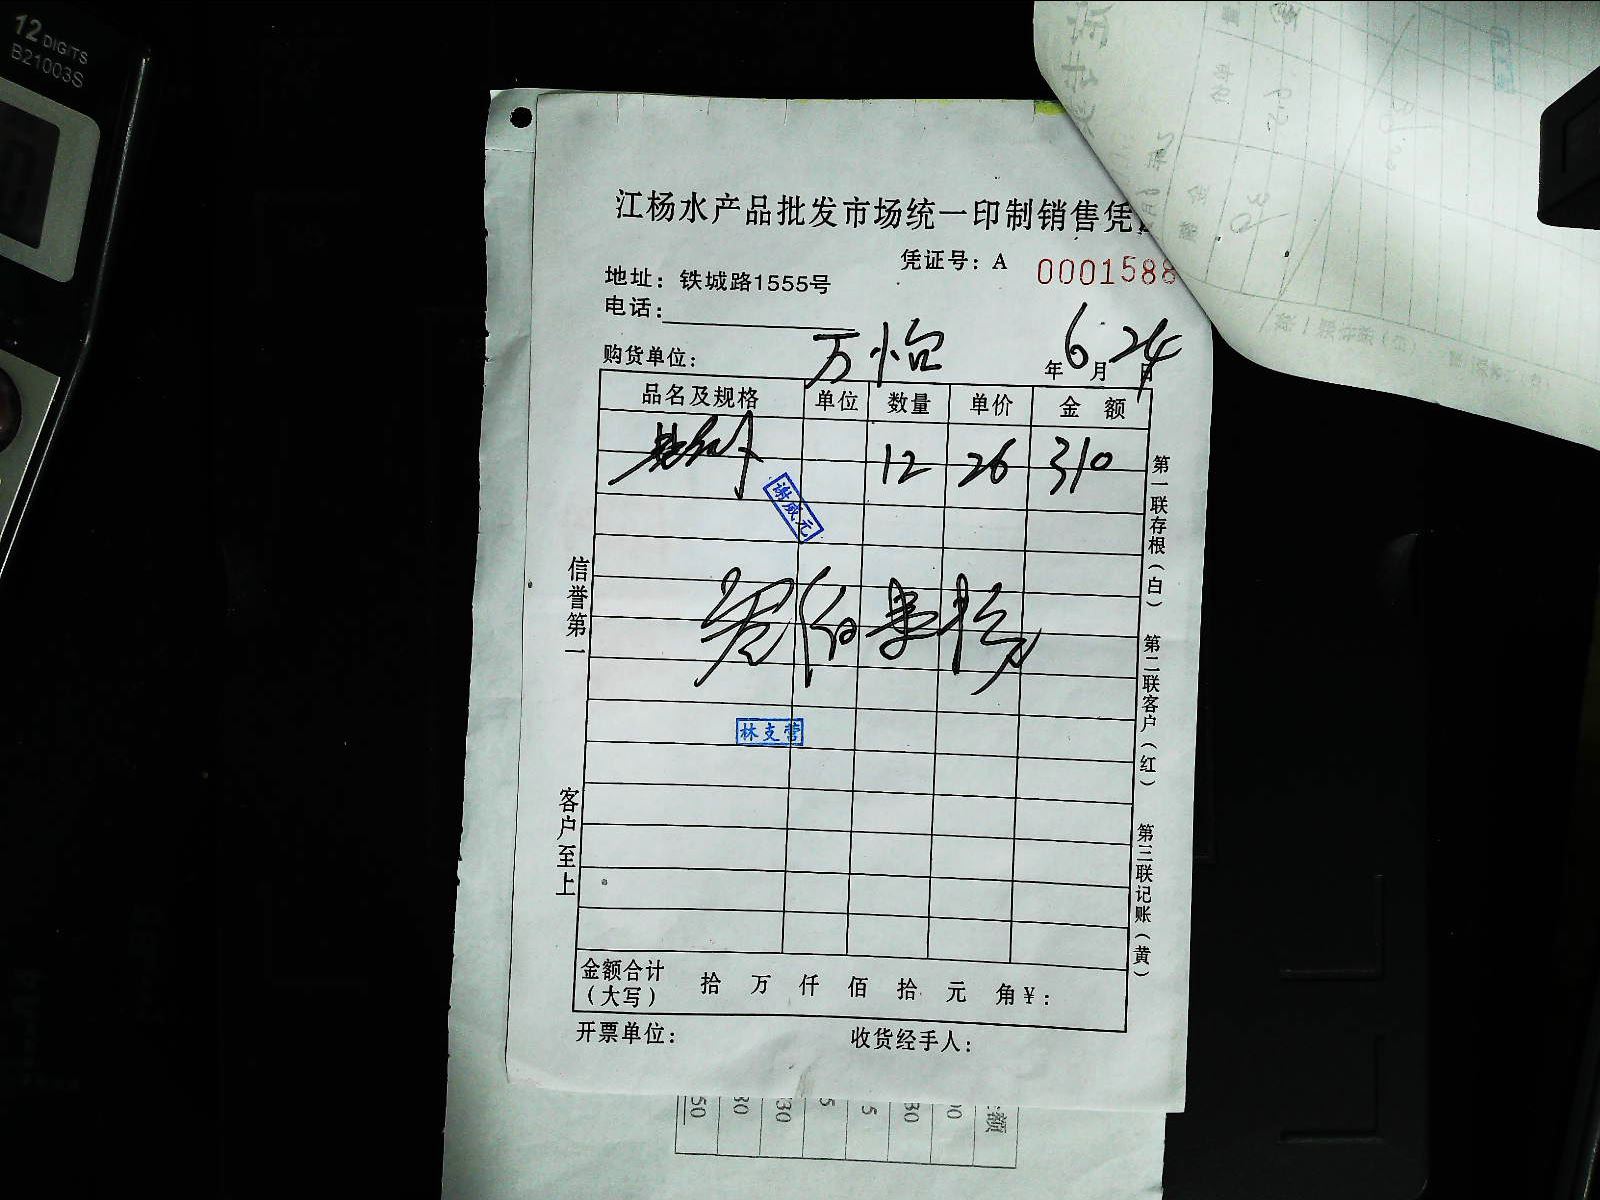 12 DIGITS
B21003S
江杨水产品批发市场统一印制销售凭
凭证号：A 0001588
地址：铁城路1555号
电话：
购货单位： 万怡 年 6 月 24 日
品名及规格 单位 数量 单价 金 额
12 26 310
谢成元
林支营
信誉第一
客户至上
第一联存根（白）
第二联客户（红）
第三联记账（黄）
金额合计（大写） 拾 万 仟 佰 拾 元 角 ¥：
开票单位： 收货经手人：